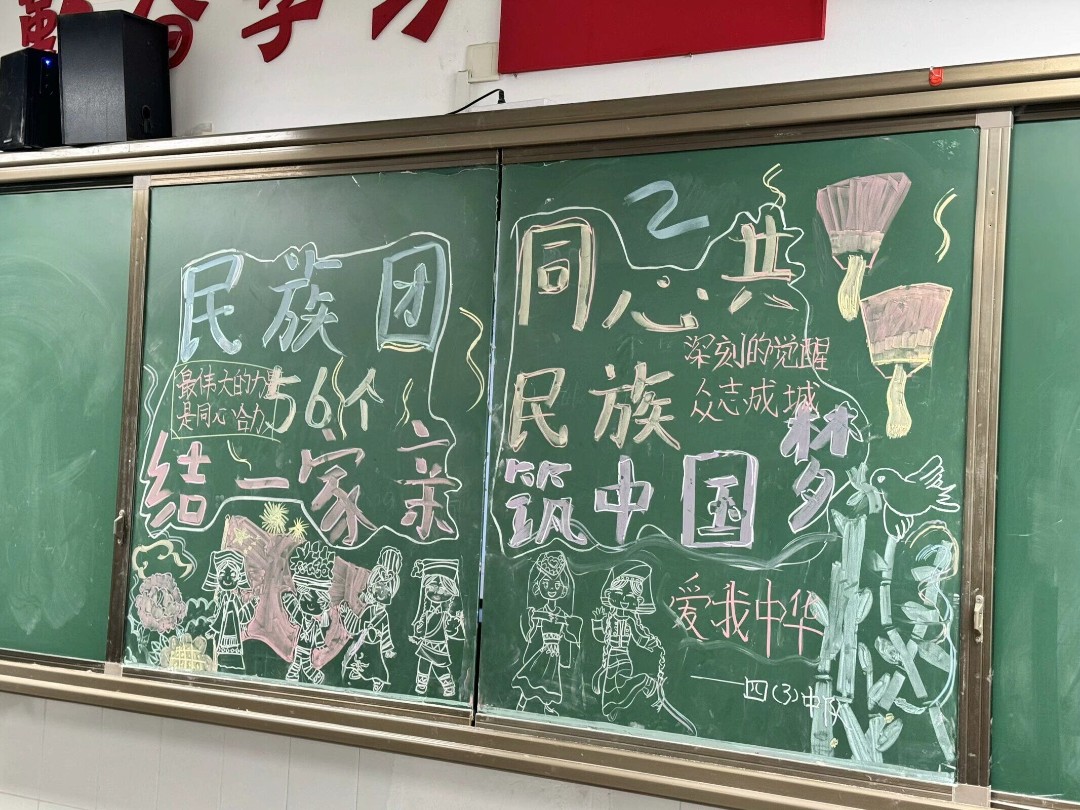 民族团
最伟大的力量
是同心合力
56个
结一家亲
同心共
深刻的觉醒
众志成城
民族
筑中国梦
爱我中华
——四(3)中队